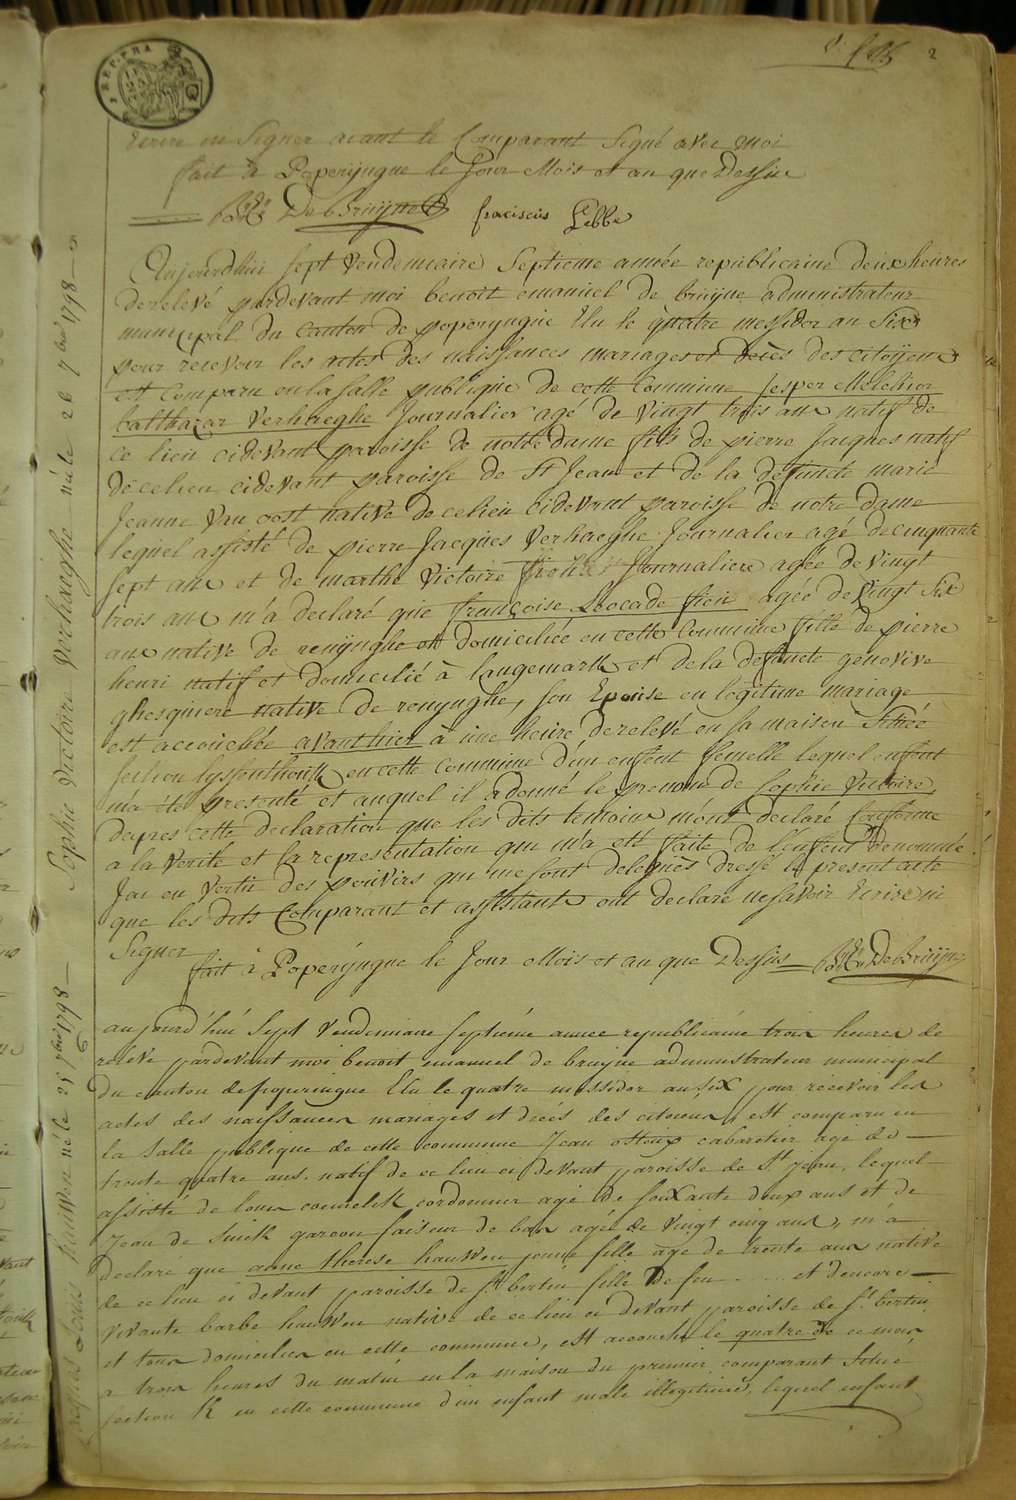 2
Ecrire ni Signer aiant le Comparant Signé avec moi
fait à Poperijngue le Jour Mois et an que Dessus
De Bruijne franciscus Lebbe
Aujourd'hui sept Vendemiaire Septieme année republicaine deux heures
de relevé pardevant moi benoit emanuel de bruijne administrateur
municipal du Canton de poperyngue Elu le quatre messidor an Six
pour recevoir les actes des naissances mariages et decès des citoijens
est comparu en la salle publique de cette Commune Jesper Melchior
balthazar Verhaeghe Journalier agé de vingt trois ans natif de
ce lieu cidevant paroisse de notre dame fils de pierre Jacques natif
de ce lieu cidevant paroisse de St Jean et de la defuncte marie
Jeanne Van oost native de ce lieu cidevant paroisse de notre dame
lequel assisté de pierre Jacques Verhaeghe Journalier agé de cinquante
sept ans et de marthe Victoire Journaliere agée de vingt
trois ans m'a declaré que françoise Leocade agée de Vingt Six
ans native de renijnghe et domiciliée en cette Commune fille de pierre
henri natif et domicilié à langemarck et de la defuncte genovive
ghesquiere native de renijnghe, son Epouse en legitime mariage
est accouchée avanthier à une heure de relevé en sa maison Située
section lyssenthouck en cette commune d'un enfant femelle lequel enfant
m'a été presenté et auquel il a donné le prenom de Sophie Victoire
depres cette declaration que les dits temoins m'ont declaré conforme
a la verité et la representation qui m'a été faite de l'enfant denommée
Jai en vertu des pouvoirs qui me sont delegués dressé le present acte
que les dits Comparant et assistants ont declaré ne savoir Ecrire ni
Signer
fait à Poperijngue le Jour Mois et an que Dessus De Bruijne
aujourd'hui Sept Vendemiaire septieme année republicaine trois heures de
relevé pardevant moi benoit emanuel de bruijne administrateur municipal
du canton de poperingue Elu le quatre messidor an six pour recevoir les
actes des naissances mariages et decés des citoiens, est comparu en
la salle publique de cette commune Jean cabaretier agé de
trente quatre ans. natif de ce lieu ci devant paroisse de St Jean, lequel
assisté de louis cordonnier agé de soixante deux ans et de
Jean de garcon faiseur de bas agé de vingt cinq ans, m'a
declaré que anne therese hauwen jeune fille agé de trente ans native
de ce lieu ci devant paroisse de St bertin fille de feu ... et d'encore
vivante barbe hauwen native de ce lieu ci devant paroisse de St bertin
et tous domicilies en cette commune, est accouché le quatre de ce mois
a trois heures du matin en la maison du premier comparant Situé
section K en cette commune d'un enfant male illegitime, lequel enfant
Sophie Victoire Verhaeghe née le 26 7bre 1798
Louis hauwen né le 25 7bre 1798